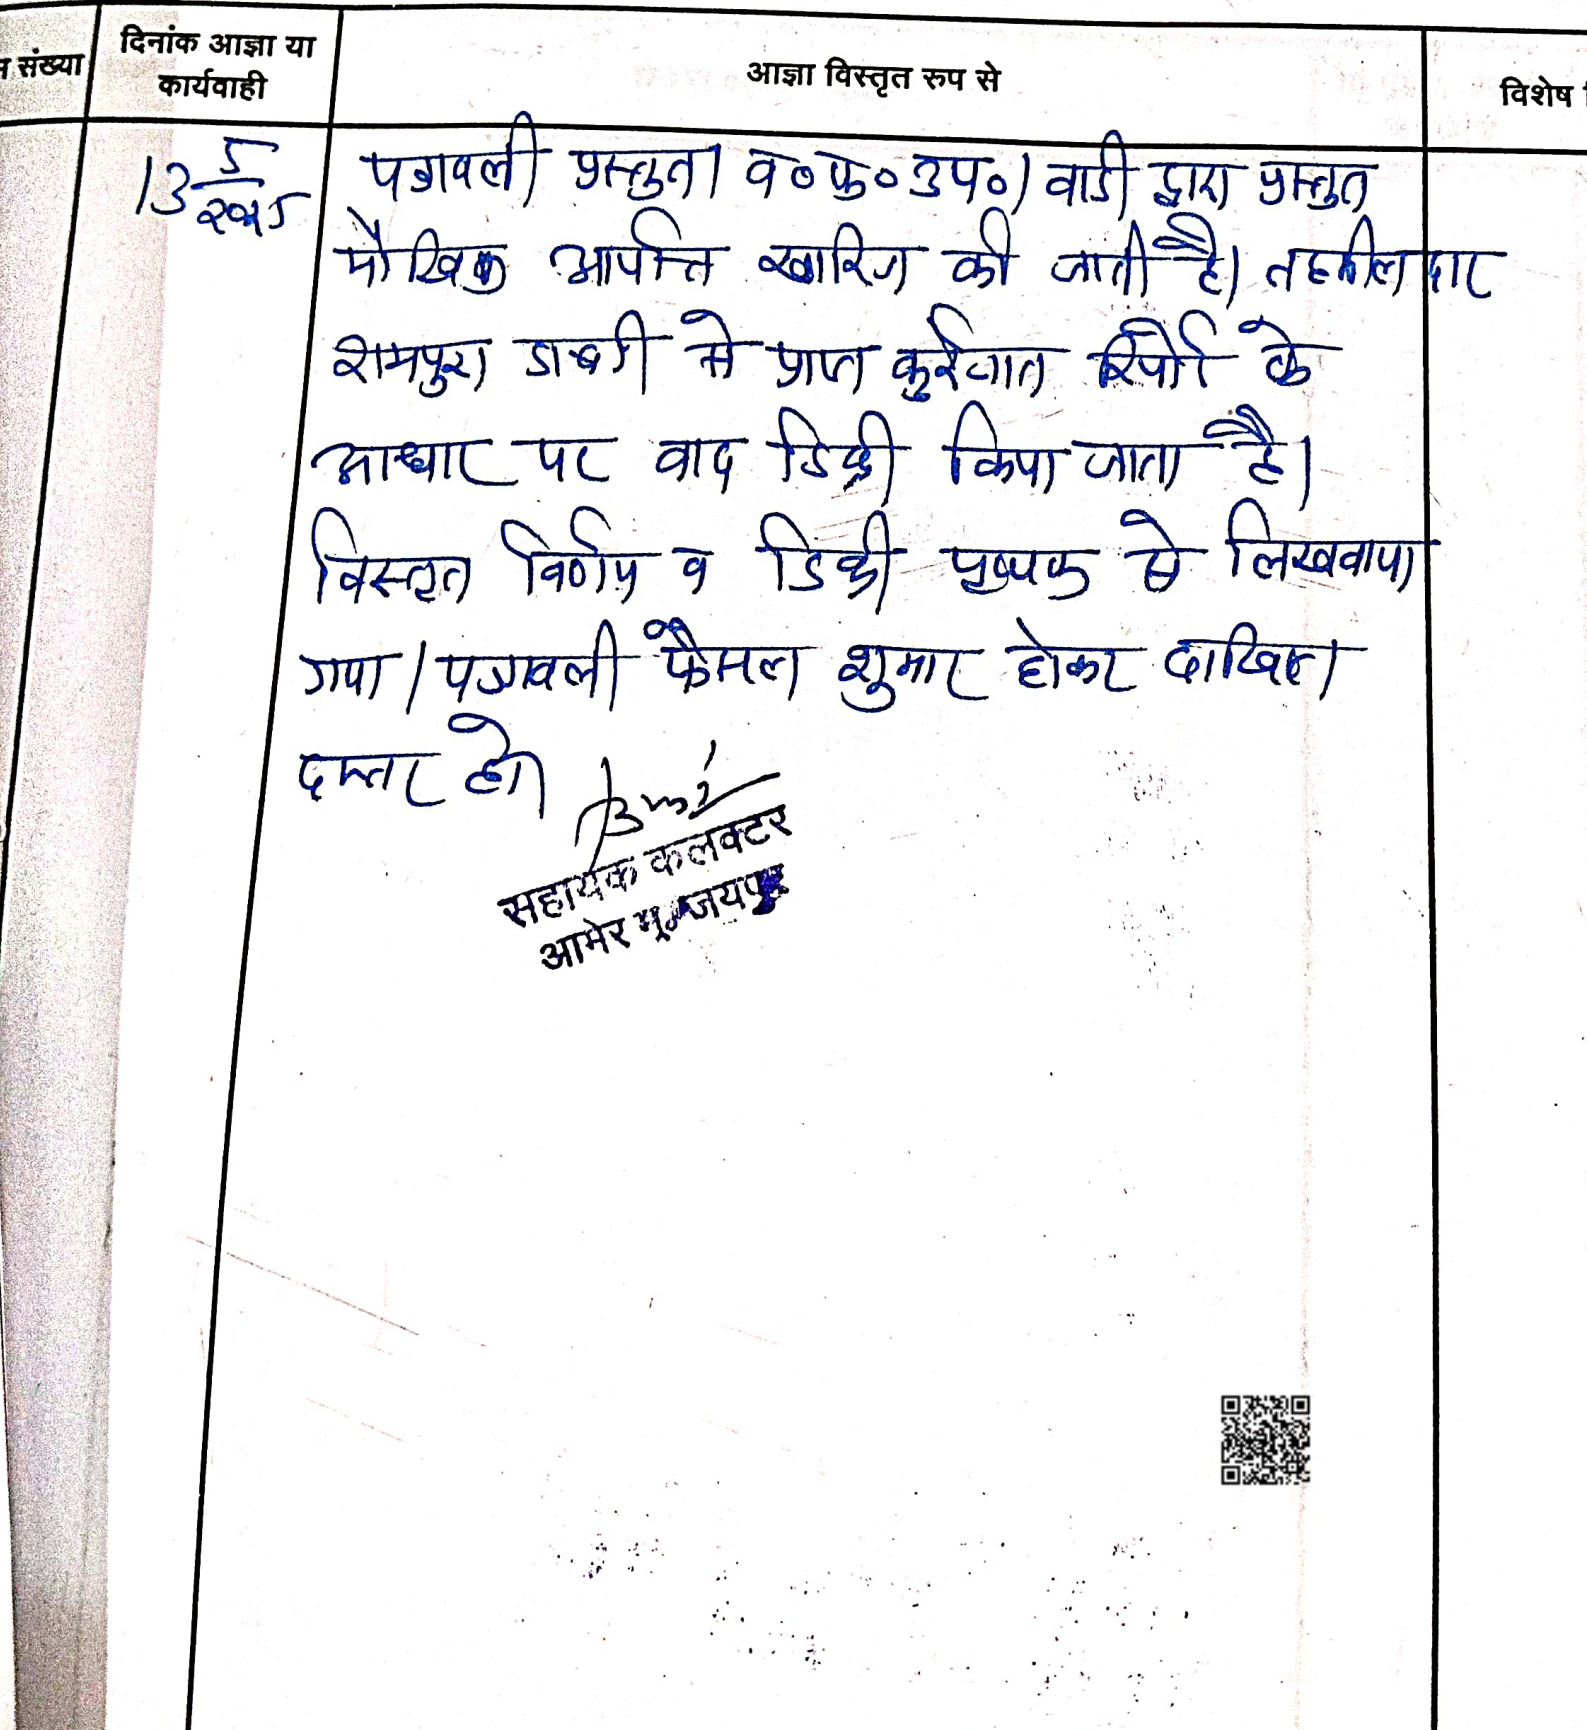 संख्या
दिनांक आज्ञा या
कार्यवाही
आज्ञा विस्तृत रुप से
विशेष
13/5/2025
पत्रावली प्रस्तुत। व०फ०उप०। वादी द्वारा प्रस्तुत
मौखिक आपत्ति खारिज की जाती है। तहसीलदार
रामपुरा डाबडी से प्राप्त कुर्रेजात रिपोर्ट के
आधार पर वाद डिक्री किया जाता है।
विस्तृत निर्णय व डिक्री पृथक से लिखवाया
गया। पत्रावली फैसल शुमार होकर दाखिल
दफ्तर हो।
सहायक कलक्टर
आमेर जयपुर